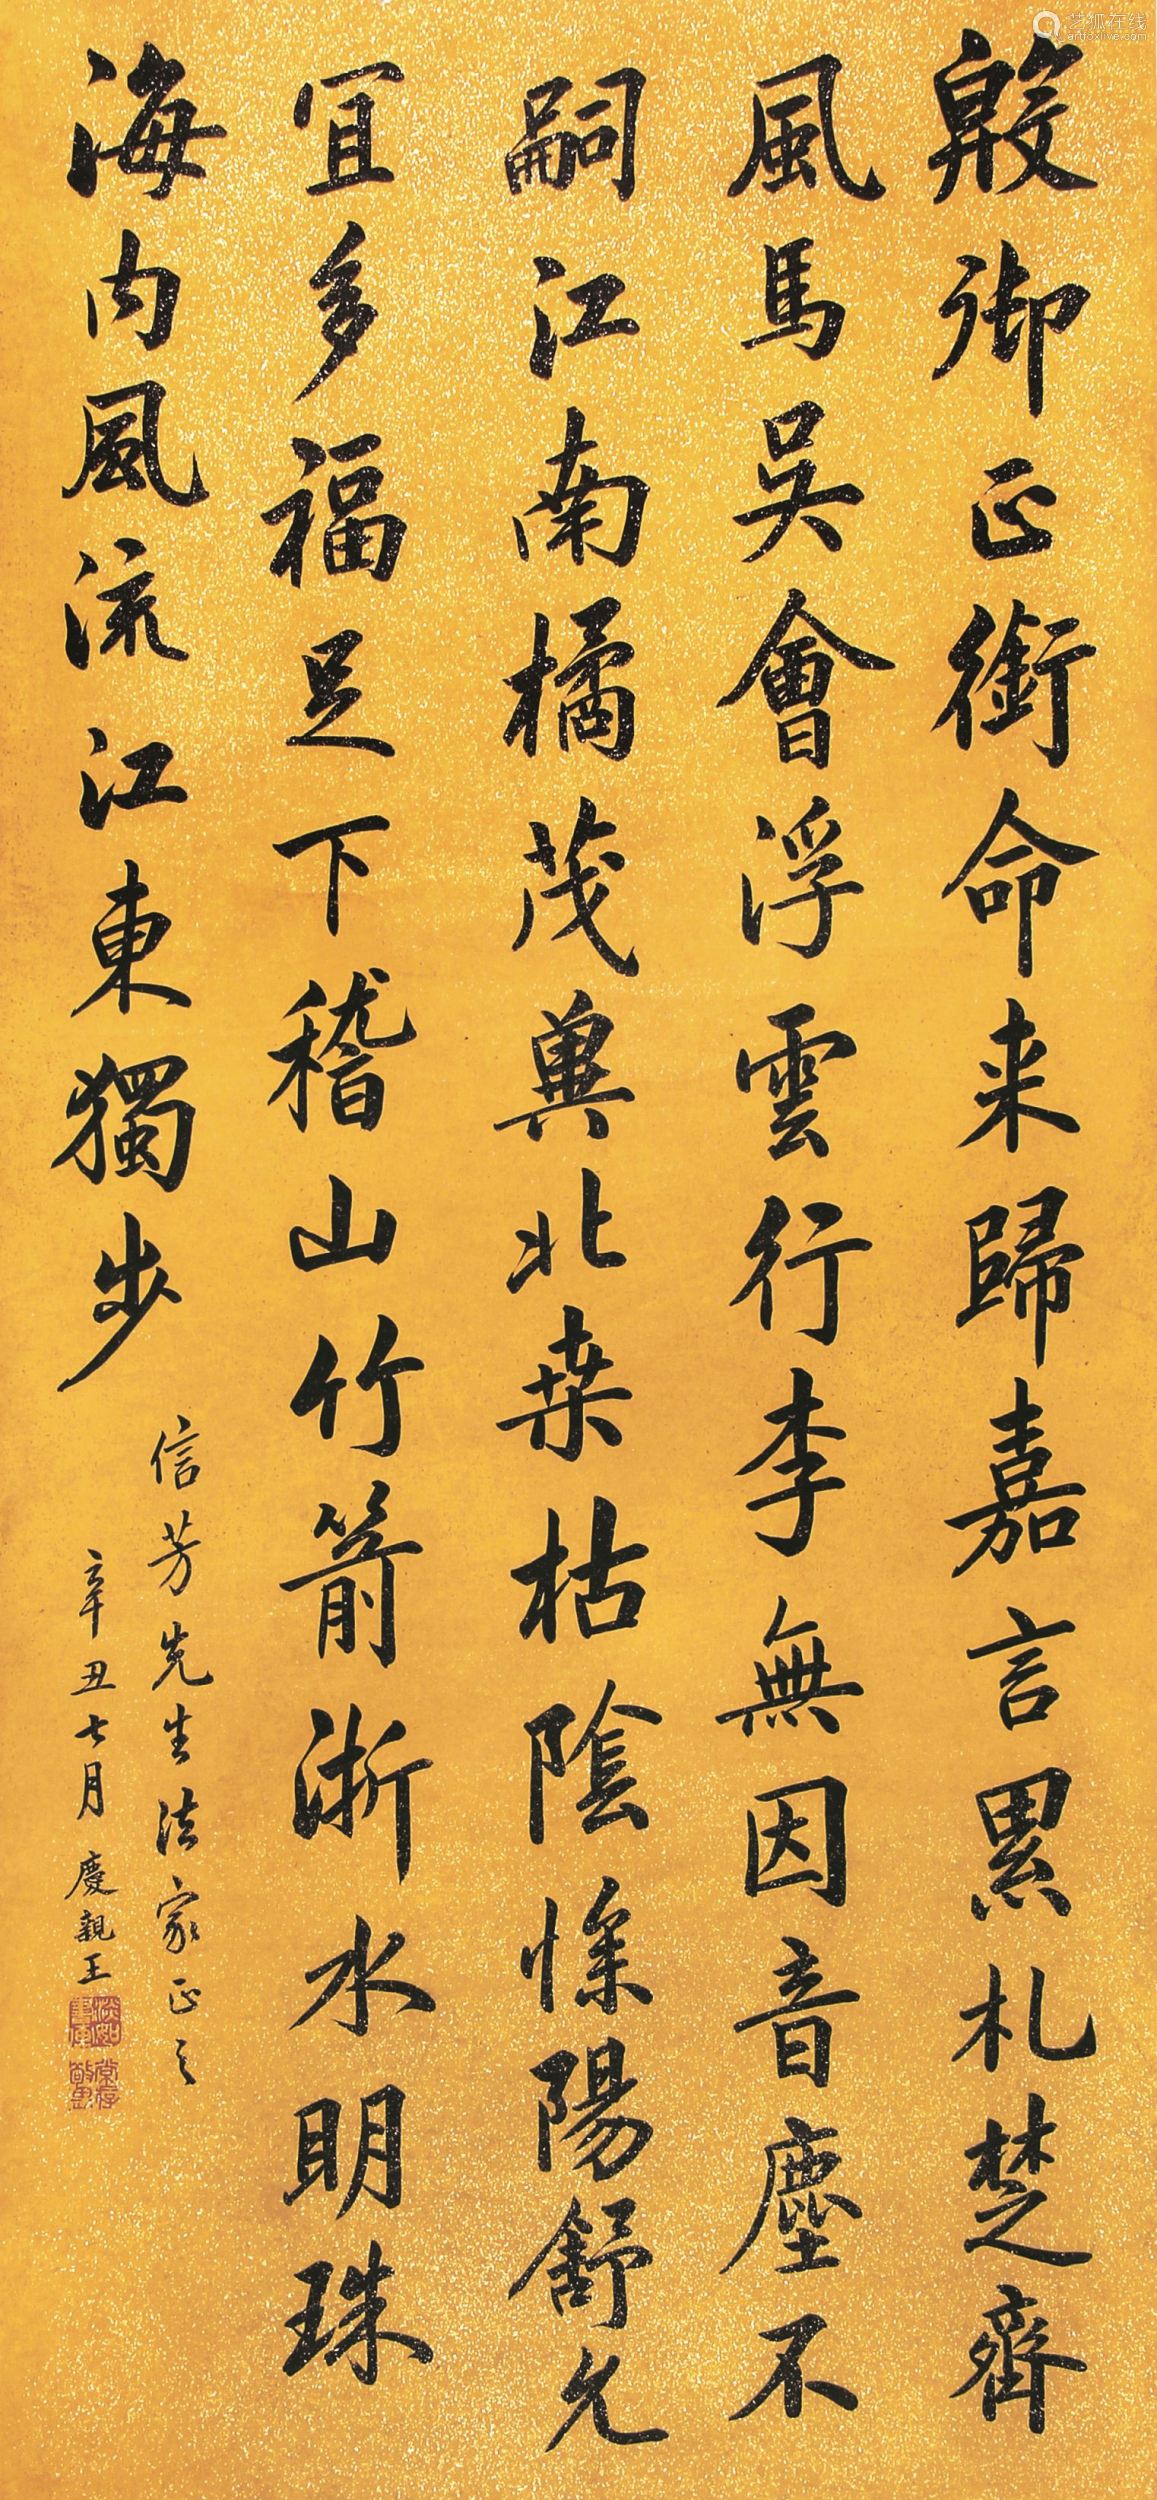 殷御正銜命来歸嘉言累札楚齊
風馬吳會浮雲行李無因音塵不
嗣江南橘茂兾北桒枯陰慘陽舒允
宜多福足下稽山竹箭浙水明珠
海内風流江東獨步
信芳先生法家正之
辛丑七月慶親王
艺狐在线
artfoxlive.com